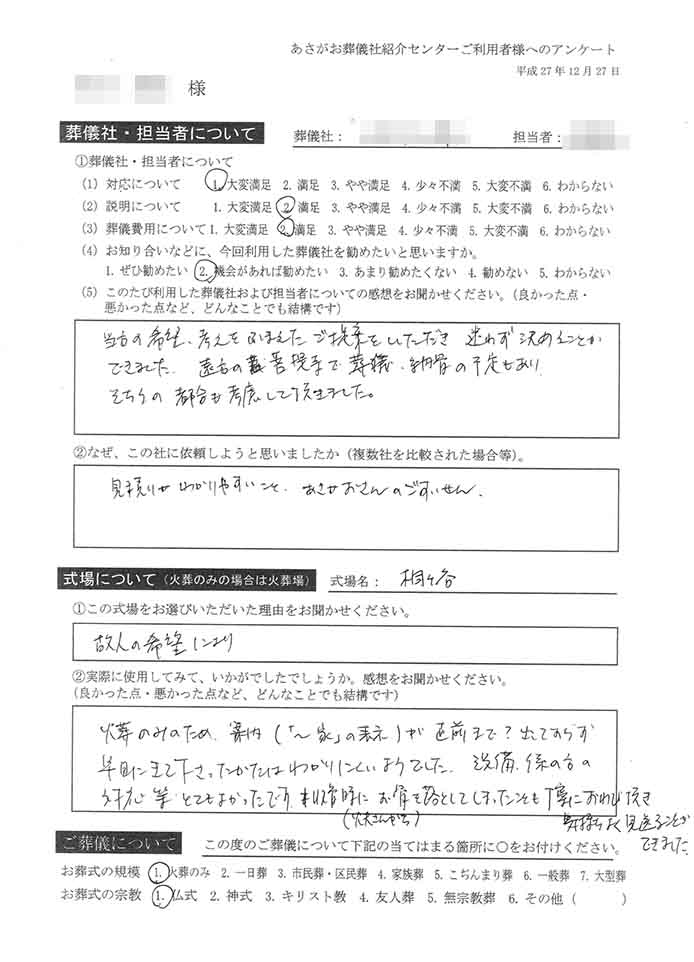 あさがお葬儀社紹介センターご利用者様へのアンケート
平成27年12月27日
様
葬儀社・担当者について 葬儀社： 担当者：
①葬儀社・担当者について
(1) 対応について 1. 大変満足 2. 満足 3. やや満足 4. 少々不満 5. 大変不満 6. わからない
(2) 説明について 1. 大変満足 2. 満足 3. やや満足 4. 少々不満 5. 大変不満 6. わからない
(3) 葬儀費用について 1. 大変満足 2. 満足 3. やや満足 4. 少々不満 5. 大変不満 6. わからない
(4) お知り合いなどに、今回利用した葬儀社を勧めたいと思いますか。
1. ぜひ勧めたい 2. 機会があれば勧めたい 3. あまり勧めたくない 4. 勧めない 5. わからない
(5) このたび利用した葬儀社および担当者についての感想をお聞かせください。（良かった点・
悪かった点など、どんなことでも結構です）
当方の希望、考えをふまえたご提案をしていただき 迷わず決めることが
できました。 遠方の菩提寺で葬儀、納骨の予定もあり
そちらの都合も考慮して頂きました。
②なぜ、この社に依頼しようと思いましたか（複数社を比較された場合等）。
見積りがわかりやすいこと、あさがおさんのごすいせん。
式場について（火葬のみの場合は火葬場） 式場名： 桐ヶ谷
①この式場をお選びいただいた理由をお聞かせください。
故人の希望により
②実際に使用してみて、いかがでしたでしょうか。感想をお聞かせください。
（良かった点・悪かった点など、どんなことでも結構です）
火葬のみのため、案内（「〜家」の表示）が直前まで？出ておらず
早目に来て下さったかたはわかりにくいようでした。 設備、係の方の
対応等とてもよかったです。収骨時にお骨を落としてしまったことも丁寧におわび頂き
気持ちよく見送ることが
できました
ご葬儀について この度のご葬儀について下記の当てはまる箇所に○をお付けください。
お葬式の規模 1. 火葬のみ 2. 一日葬 3. 市民葬・区民葬 4. 家族葬 5. こぢんまり葬 6. 一般葬 7. 大型葬
お葬式の宗教 1. 仏式 2. 神式 3. キリスト教 4. 友人葬 5. 無宗教葬 6. その他（ ）